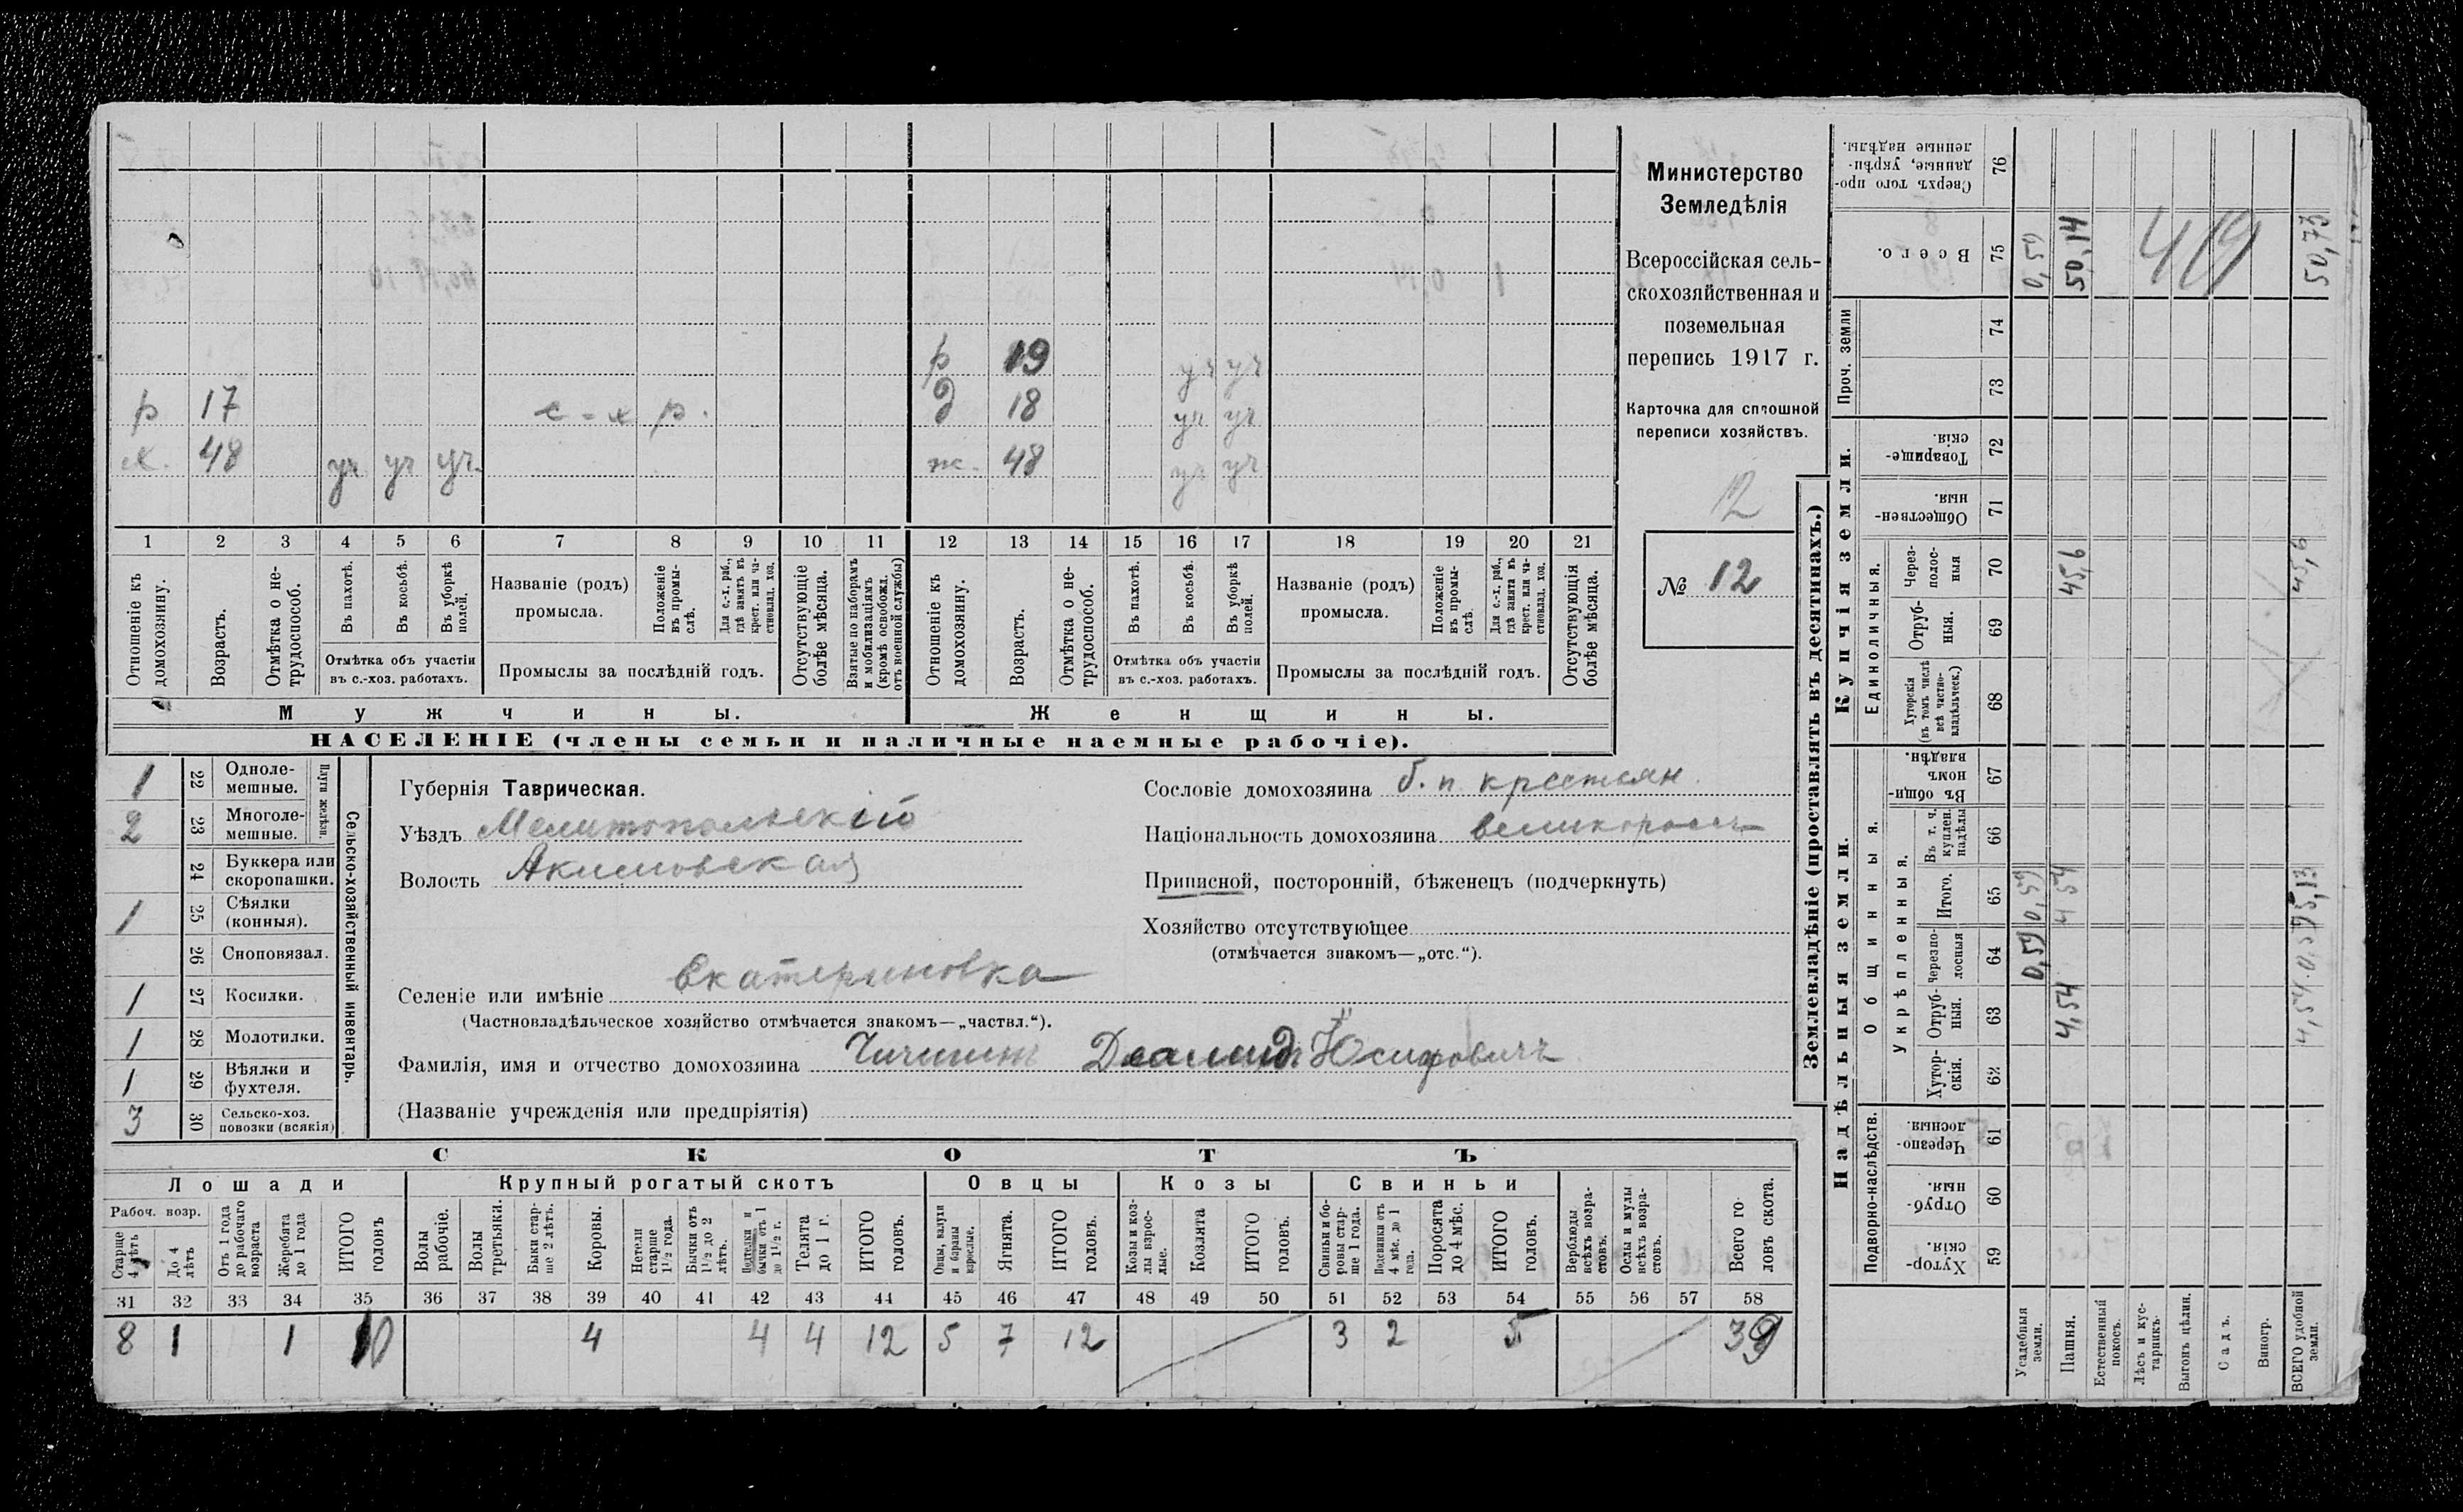 Министерство
Земледѣлія
Всероссійская сель-
скохозяйственная и
поземельная
перепись 1917 г.
Карточка для сплошной
переписи хозяйствъ.
12
№ 12
р 19 уч уч
р 17 с-х р. д 18 уч уч
х. 48 уч уч уч. ж. 48 уч уч
1 2 3 4 5 6 7 8 9 10 11 12 13 14 15 16 17 18 19 20 21
Отношеніе къ домохозяину.
Возрастъ.
Отмѣтка о не-трудоспособ.
Въ пахотѣ.
Въ косьбѣ.
Въ уборкѣ полей.
Отмѣтка объ участіи въ с.-хоз. работахъ.
Названіе (родъ) промысла.
Положеніе въ промы-слѣ.
Для с.-х. раб., гдѣ занятъ въ крест. или ча-стновлад. хоз.
Промыслы за послѣдній годъ.
Отсутствующіе болѣе мѣсяца.
Взятые по наборамъ и мобилизаціямъ (кромѣ освобожд. отъ военной службы)
Отношеніе къ домохозяину.
Возрастъ.
Отмѣтка о не-трудоспособ.
Въ пахотѣ.
Въ косьбѣ.
Въ уборкѣ полей.
Отмѣтка объ участіи въ с.-хоз. работахъ.
Названіе (родъ) промысла.
Положеніе въ промы-слѣ.
Для с.-х. раб., гдѣ занята въ крест. или ча-стновлад. хоз.
Промыслы за послѣдній годъ.
Отсутствующія болѣе мѣсяца.
Мужчины. Женщины.
НАСЕЛЕНІЕ (члены семьи и наличные наемные рабочіе).
1 22 Одноле-мешные.
2 23 Многоле-мешные.
Плуги желѣзн.
24 Буккера или скоропашки.
1 25 Сѣялки (конныя).
26 Сноповязал.
1 27 Косилки.
1 28 Молотилки.
1 29 Вѣялки и фухтеля.
3 30 Сельско-хоз. повозки (всякія)
Сельско-хозяйственный инвентарь.
Губернія Таврическая.
Уѣздъ Мелитопольскій
Волость Акимовская
Сословіе домохозяина б. п. крестьян.
Національность домохозяина великороссъ
Приписной, посторонній, бѣженецъ (подчеркнуть)
Хозяйство отсутствующее
(отмѣчается знакомъ—„отс.“).
Селеніе или имѣніе Екатериновка
(Частновладѣльческое хозяйство отмѣчается знакомъ—„частвл.“).
Фамилія, имя и отчество домохозяина
(Названіе учрежденія или предпріятія)
СКОТЪ
Лошади Крупный рогатый скотъ Овцы Козы Свиньи
Рабоч. возр.
Старше 4 лѣтъ
До 4 лѣтъ
Отъ 1 года до рабочаго возраста
Жеребята до 1 года
ИТОГО головъ
Волы рабочіе.
Волы третьяки.
Быки стар-ше 2 лѣтъ.
Коровы.
Нетели старше 1½ года.
Бычки отъ 1½ до 2 лѣтъ.
Подтелки и бычки отъ 1 до 1½ г.
Телята до 1 г.
ИТОГО головъ.
Овцы, валухи и бараны взрослые.
Ягнята.
ИТОГО головъ.
Козы и коз-лы взрос-лые.
Козлята
ИТОГО головъ.
Свиньи и бо-ровы стар-ше 1 года.
Подсвинки отъ 4 мѣс. до 1 года.
Поросята до 4 мѣс.
ИТОГО головъ.
Верблюды всѣхъ возра-стовъ.
Ослы и мулы всѣхъ возра-стовъ.
Всего го-ловъ скота.
31 32 33 34 35 36 37 38 39 40 41 42 43 44 45 46 47 48 49 50 51 52 53 54 55 56 57 58
8 1 1 10 4 4 4 12 5 7 12 3 2 5 39
Землевладѣніе (проставлять въ десятинахъ.)
Надѣльныя земли. Купчія земли.
Подворно-наслѣдств. Общинныя. Единоличныя. Проч. земли
Укрѣпленныя.
Хутор-скія. 59
Отруб-ныя. 60
Черезпо-лосныя. 61
Хутор-скія. 62
Отруб-ныя. 63
Черезпо-лосныя 64
Итого. 65
Въ т. ч. куплен. надѣлы 66
Въ общин-номъ владѣн. 67
Хуторскія (въ томъ числѣ всѣ частно-владѣльческ.) 68
Отруб-ныя. 69
Через-полос-ныя 70
Обществен-ныя. 71
Товарище-скія. 72
73
74
Всего. 75
Сверхъ того про-данные, укрѣп-ленные надѣлы. 76
Усадебныя земли. 0,59 0,59 0,59
Пашня. 4,54 4 54 45,6 50,14
Естественный покосъ.
Лѣсъ и кус-тарникъ.
Выгонъ цѣлин.
Садъ.
Виногр.
ВСЕГО удобной земли. 4,54 0,59 5,13 45,6 50,73